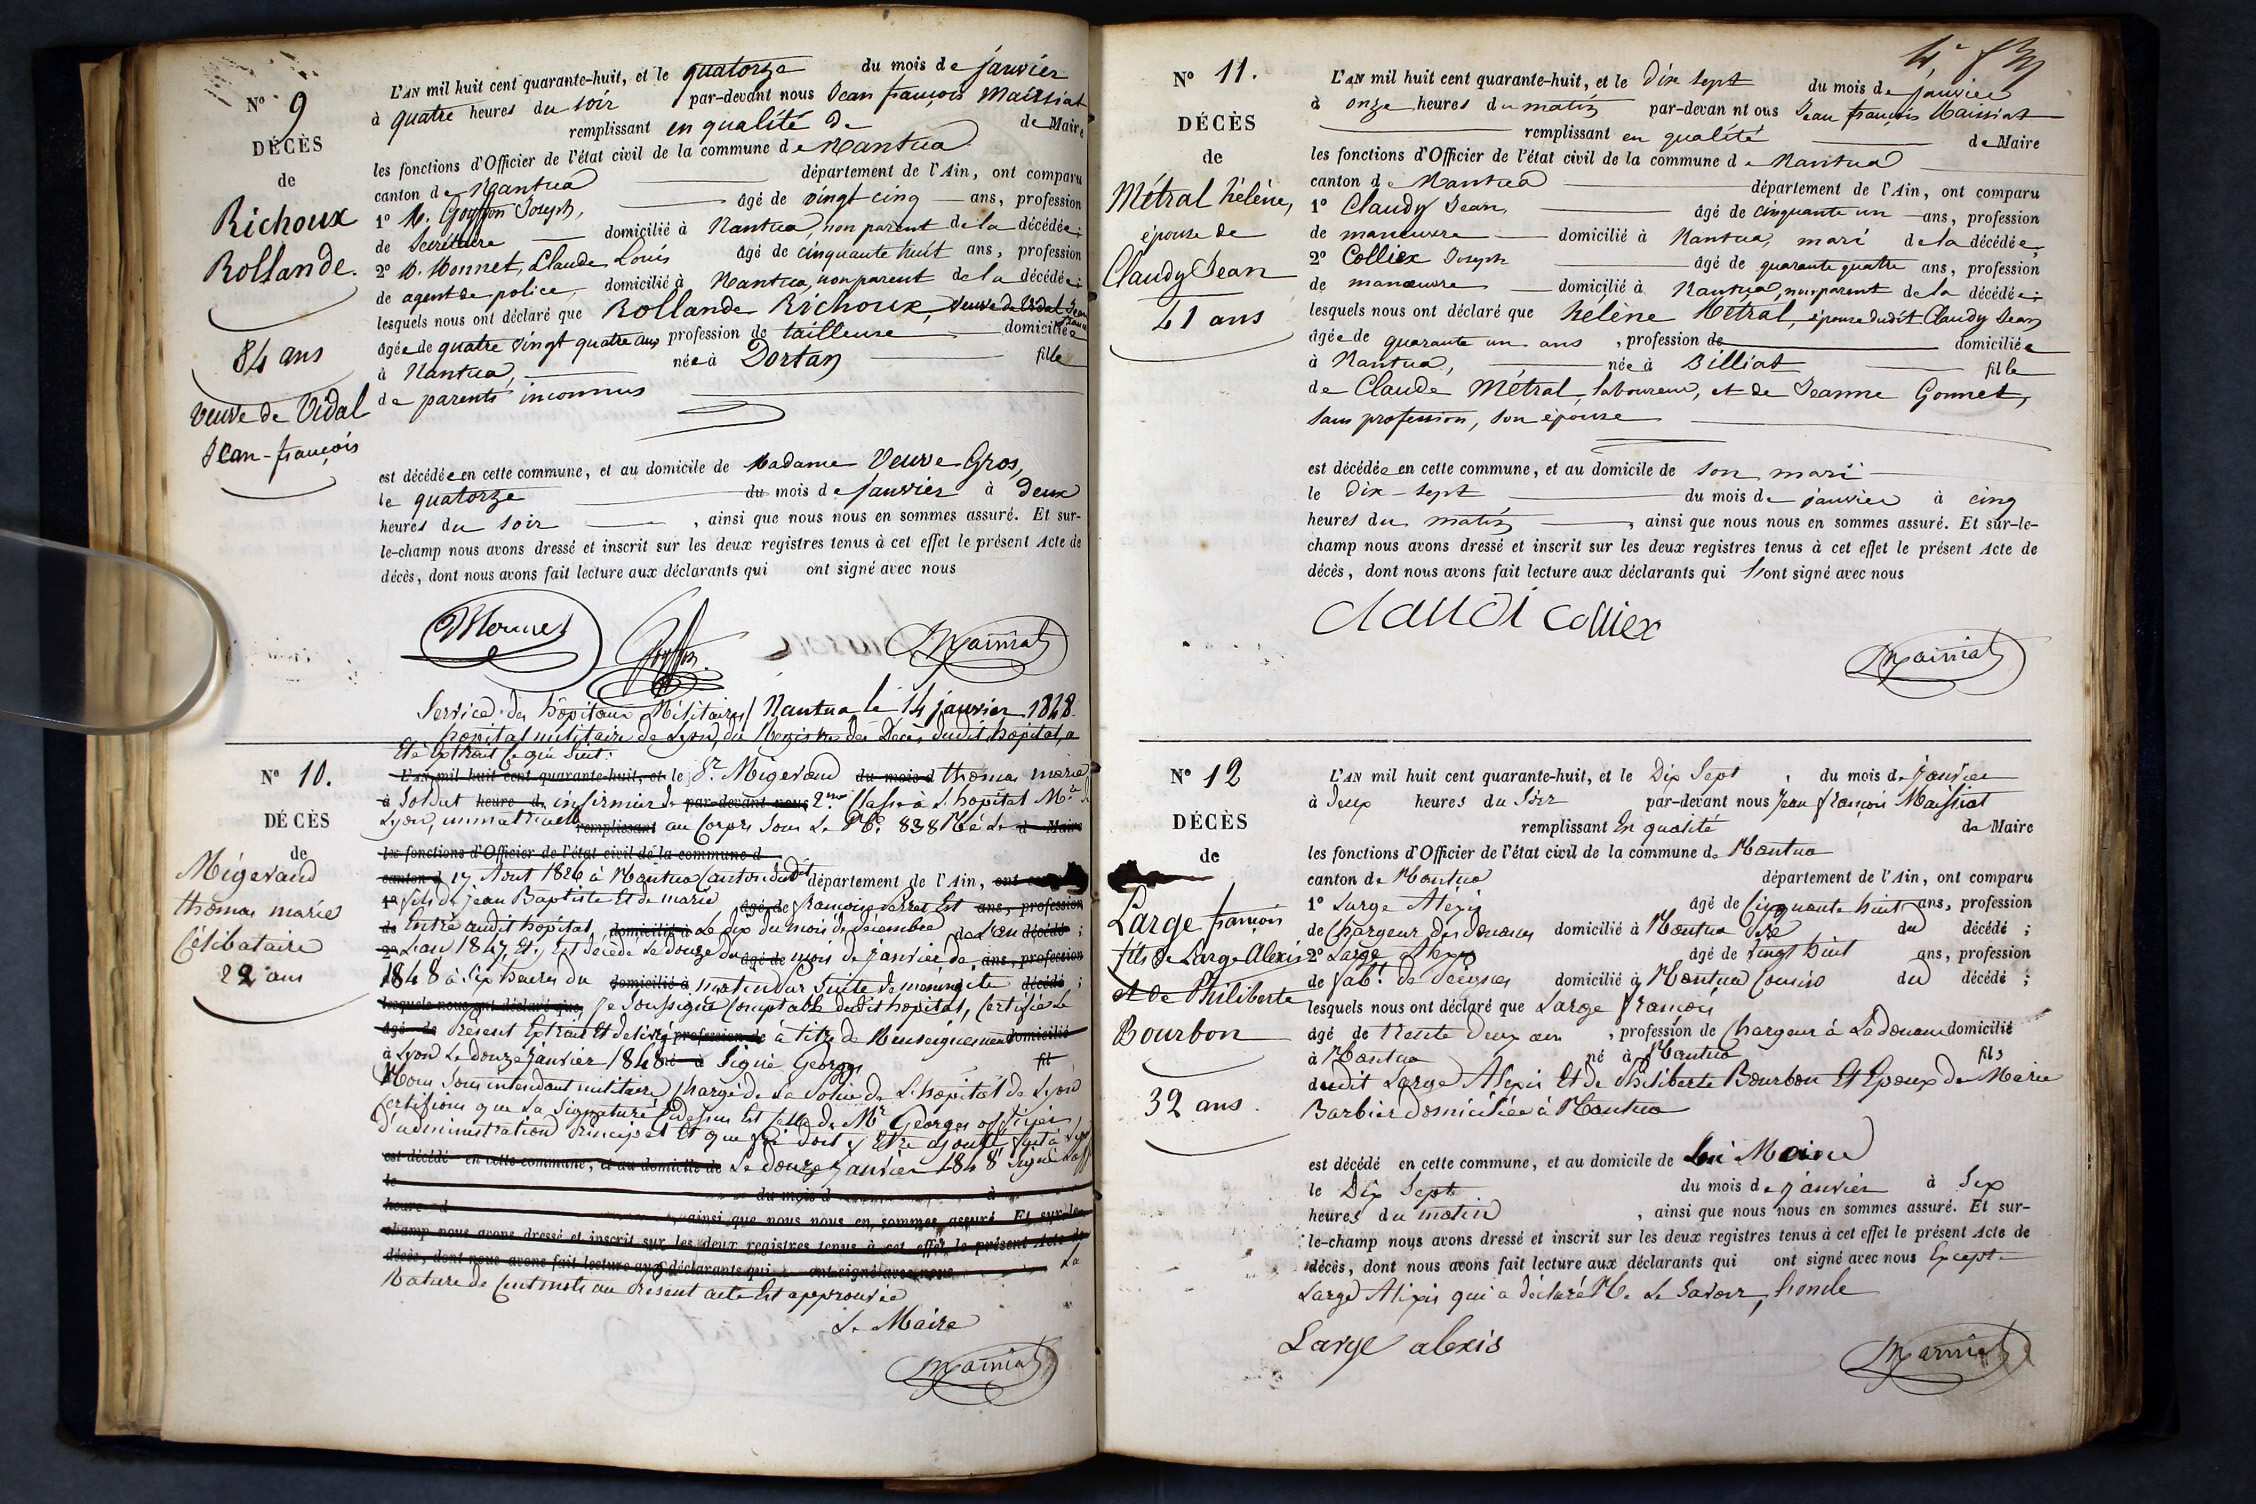 N° 9
DÉCÈS
de
Richoux
Rollande.
84 ans
veuve de Vidal
Jean-françois
L'AN mil huit cent quarante-huit, et le quatorze du mois de janvier
à quatre heures du soir par-devant nous Jean françois Maissiat
remplissant en qualité de de Maire
les fonctions d'Officier de l'état civil de la commune de Nantua
canton de Nantua département de l'Ain, ont comparu
1° M. Goyffon Joseph, âgé de vingt cinq ans, profession
de Secrétaire domicilié à Nantua, non parent de la décédée;
2° M. Monnet, Claude Louis âgé de cinquante huit ans, profession
de agent de police, domicilié à Nantua, non parent de la décédée;
lesquels nous ont déclaré que Rollande Richoux, veuve de Vidal Jean
françois
âgée de quatre vingt quatre ans profession de tailleuse domiciliée
à Nantua, née à Dortan fille
de parents inconnus
est décédée en cette commune, et au domicile de Madame Veuve Gros,
le quatorze du mois de janvier à deux
heures du soir , ainsi que nous nous en sommes assuré. Et sur-
le-champ nous avons dressé et inscrit sur les deux registres tenus à cet effet le présent Acte de
décès, dont nous avons fait lecture aux déclarants qui ont signé avec nous
Monnet Goyffon Maissiat
Service des hôpitaux Militaires / Nantua le 14 janvier 1848
hopital militaire de Lyon, du Registre des Décès dudit hopital, a
Eté Extrait Ce qui Suit:
N° 10.
DÉCÈS
de
Migerand
thomas marie
Célibataire
22 ans
L'AN mil huit cent quarante-huit, et le Sr. Migerand du mois d thomas marie
à Soldat heure d infirmier de par-devant nous 2me Classe à L'hopital Mre de
Lyon, immatriculé remplissant au Corps Sous Le No. 838 Né Le d Maire
les fonctions d'Officier de l'état civil de la commune d
canton d 17 Aout 1826 à Nantua Canton dudt département de l'Ain,
1° fils de jean Baptiste Et de marie âgé de françoise Perret Est ans, profession
de Entré audit hôpital, domicilié à Le dix du mois de décembre de L'an décédé ;
2° L'an 1847, Et y Est décédé Le douze du âgé de mois de janvier de ans, profession
1848 à Six heures du domicilié à matin Par Suite de méningite décédé ;
lesquels nous ont déclaré que Je Soussigné Comptable dudit hopital, Certifie Le
âgé de Présent Extrait Et délivré profession de à titre de Renseignement domicilié
à Lyon Le douze janvier 1848 né à Signé Georges fil
Nous Sous intendant militaire Chargé de La Police de L'hopital de Lyon
Certifions que La Signature Cidessus Est Celle de Mr Georges officier
d'administration Principal Et que foi doit y Etre ajoutée fait à Lyon
est décédé en cette commune, et au domicile de Le douze janvier 1848 Signé
le du mois d à
heure d , ainsi que nous nous en sommes assuré. Et sur-le-
champ nous avons dressé et inscrit sur les deux registres tenus à cet effet le présent Acte de
décès, dont nous avons fait lecture aux déclarants qui ont signé avec nous La
Rature de Cent mots au Présent acte Est approuvée
Le Maire
Maissiat
N° 11.
DÉCÈS
de
Métral hélène,
épouse de
Claudy Jean
41 ans
L'AN mil huit cent quarante-huit, et le dix sept du mois de janvier
à onze heures du matin par-devan nt ous Jean françois Maissiat
remplissant en qualité de Maire
les fonctions d'Officier de l'état civil de la commune de Nantua
canton de Nantua département de l'Ain, ont comparu
1° Claudy Jean, âgé de cinquante un ans, profession
de manœuvre domicilié à Nantua, mari de la décédée;
2° Colliex Joseph âgé de quarante quatre ans, profession
de manœuvre domicilié à Nantua, non parent de la décédée;
lesquels nous ont déclaré que hélène Métral, épouse dudit Claudy Jean
âgée de quarante un ans , profession de domiciliée
à Nantua, née à Billiat fille
de Claude Métral, laboureur, et de Jeanne Gonnet,
sans profession, son épouse
est décédée en cette commune, et au domicile de son mari
le dix-sept du mois de janvier à cinq
heures du matin , ainsi que nous nous en sommes assuré. Et sur-le-
champ nous avons dressé et inscrit sur les deux registres tenus à cet effet le présent Acte de
décès, dont nous avons fait lecture aux déclarants qui ont signé avec nous
Claudi Colliex
Maissiat
N° 12
DÉCÈS
de
Large françois
fils de Large Alexis
et de Philiberte
Bourbon
32 ans.
L'AN mil huit cent quarante-huit, et le Dix Sept du mois de janvier
à deux heures du Soir par-devant nous Jean françois Maissiat
remplissant En qualité de Maire
les fonctions d'Officier de l'état civil de la commune de Nantua
canton de Nantua département de l'Ain, ont comparu
1° Large Aléxis âgé de Cinquante huit ans, profession
de Chargeur des douanes domicilié à Nantua Père du décédé ;
2° Large Alexis âgé de Vingt huit ans, profession
de fabt. de Peignes domicilié à Nantua Cousin du décédé ;
lesquels nous ont déclaré que Large françois
âgé de trente Deux ans , profession de Chargeur à La douane domicilié
à Nantua né à Nantua fils
dudit Large Alexis Et de Philiberte Bourbon Et Epoux de Marie
Barbier domiciliée à Nantua
est décédé en cette commune, et au domicile de
le Dix Sept du mois de janvier à Six
heures du matin , ainsi que nous nous en sommes assuré. Et sur-
le-champ nous avons dressé et inscrit sur les deux registres tenus à cet effet le présent Acte de
décès, dont nous avons fait lecture aux déclarants qui ont signé avec nous Excepté
Large Alexis qui a déclaré Ne Le Savoir,
Large alexis
Maissiat